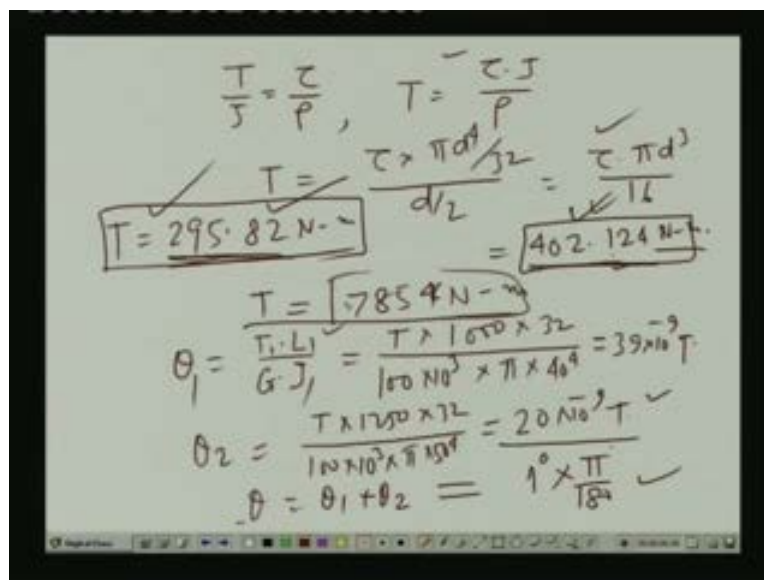 T/J = τ/ρ , T = τ·J/ρ
T = τ × πd⁴/32 / d/2 = τ πd³/16
T = 295.82 N-m
= 402.124 N-m
T = 785.4 N-m
θ₁ = T₁·L₁/G·J₁ = T × 1000 × 32/100×10³ × π × 40⁴ = 39×10⁻⁹ T
θ₂ = T × 1250 × 32/100×10³×π×50⁴ = 20×10⁻⁹ T
θ = θ₁ + θ₂ = 1° × π/180